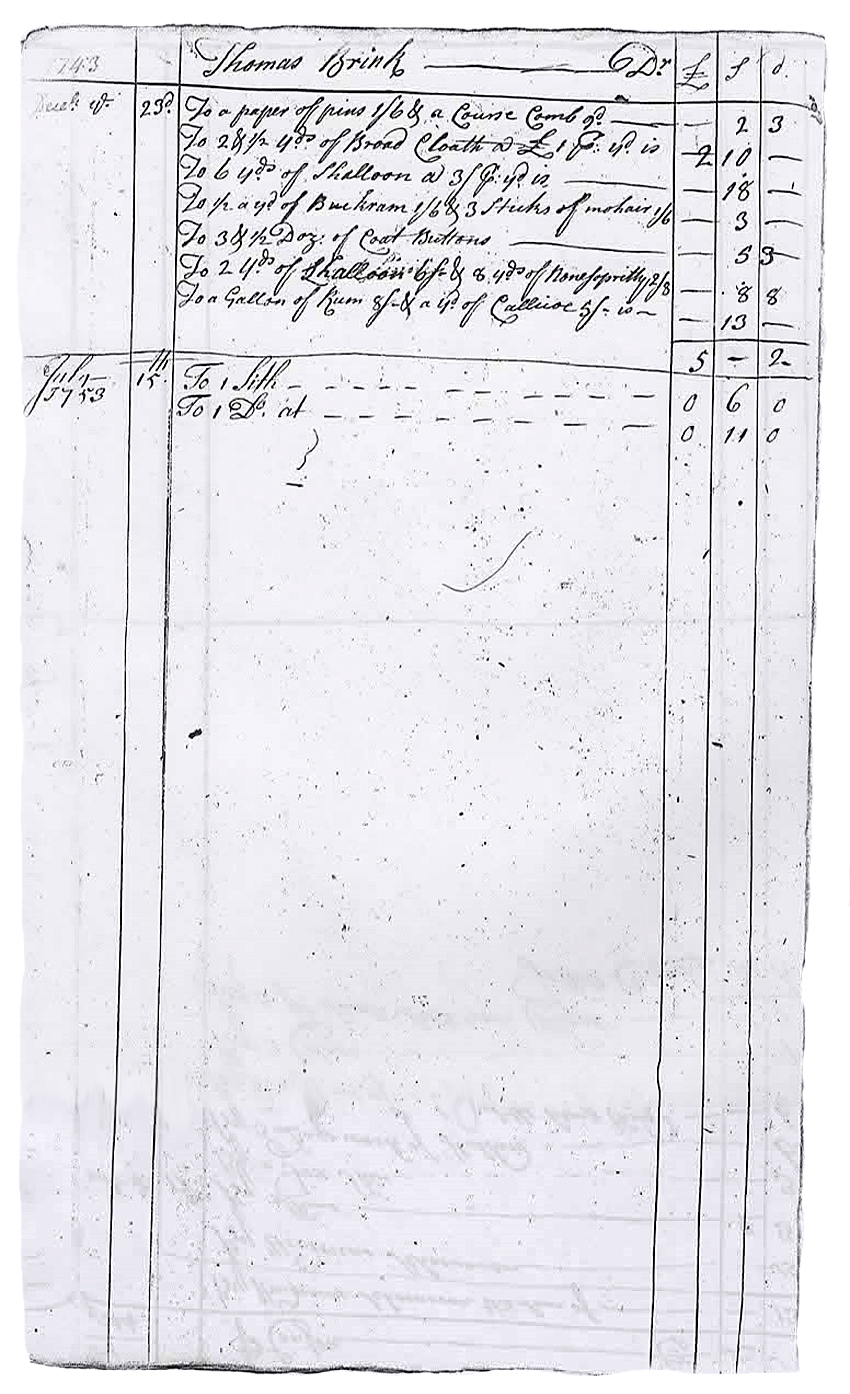 1743 Thomas Brink Dr £ s d.
Decembr ye 23d To a paper of pins 1/6 & a Course Comb 9d — 2 3
To 2 & 1/2 yds of Broad Cloath a £ 1 P: yd. is 2 10 —
To 6 yds of Shalloon a 3/ P: yd is — 18 —
To 1/2 a yd of Buckram 1/6 & 3 Sticks of mohair 1/6 — 3 —
To 3 & 1/2 Doz: of Coat Buttons — 5 3
To 2 yds of Shalloon 6/- & 8 yds of Nonesopritty 2/8 — 8 8
To a Gallon of Rum 8/- & a yd of Callicoe 5/- is — 13 —
5 — 2
July 15 To 1 Sith 0 6 0
1753 To 1 Do. at 0 11 0